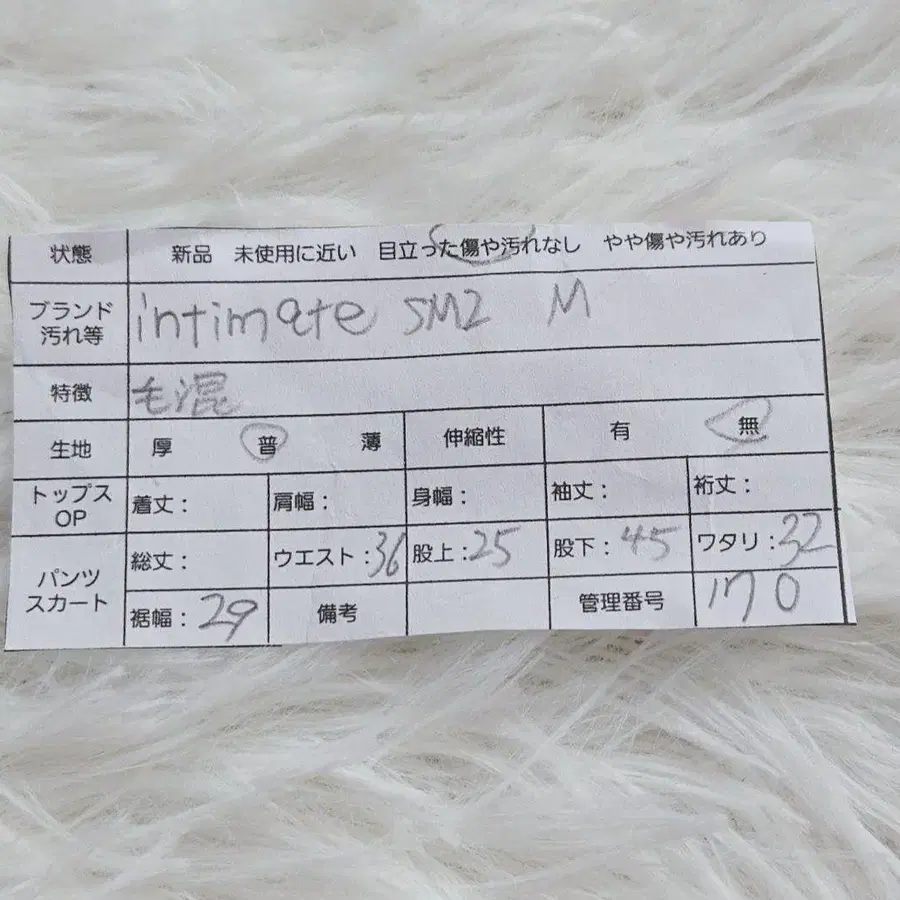 状態 新品 未使用に近い 目立った傷や汚れなし やや傷や汚れあり
ブランド
汚れ等 intimate SM2 M
特徴 毛混
生地 厚 普 薄 伸縮性 有 無
トップス
OP 着丈: 肩幅: 身幅: 袖丈: 裄丈:
パンツ
スカート 総丈: ウエスト:36 股上:25 股下:45 ワタリ:32
裾幅:29 備考 管理番号 170